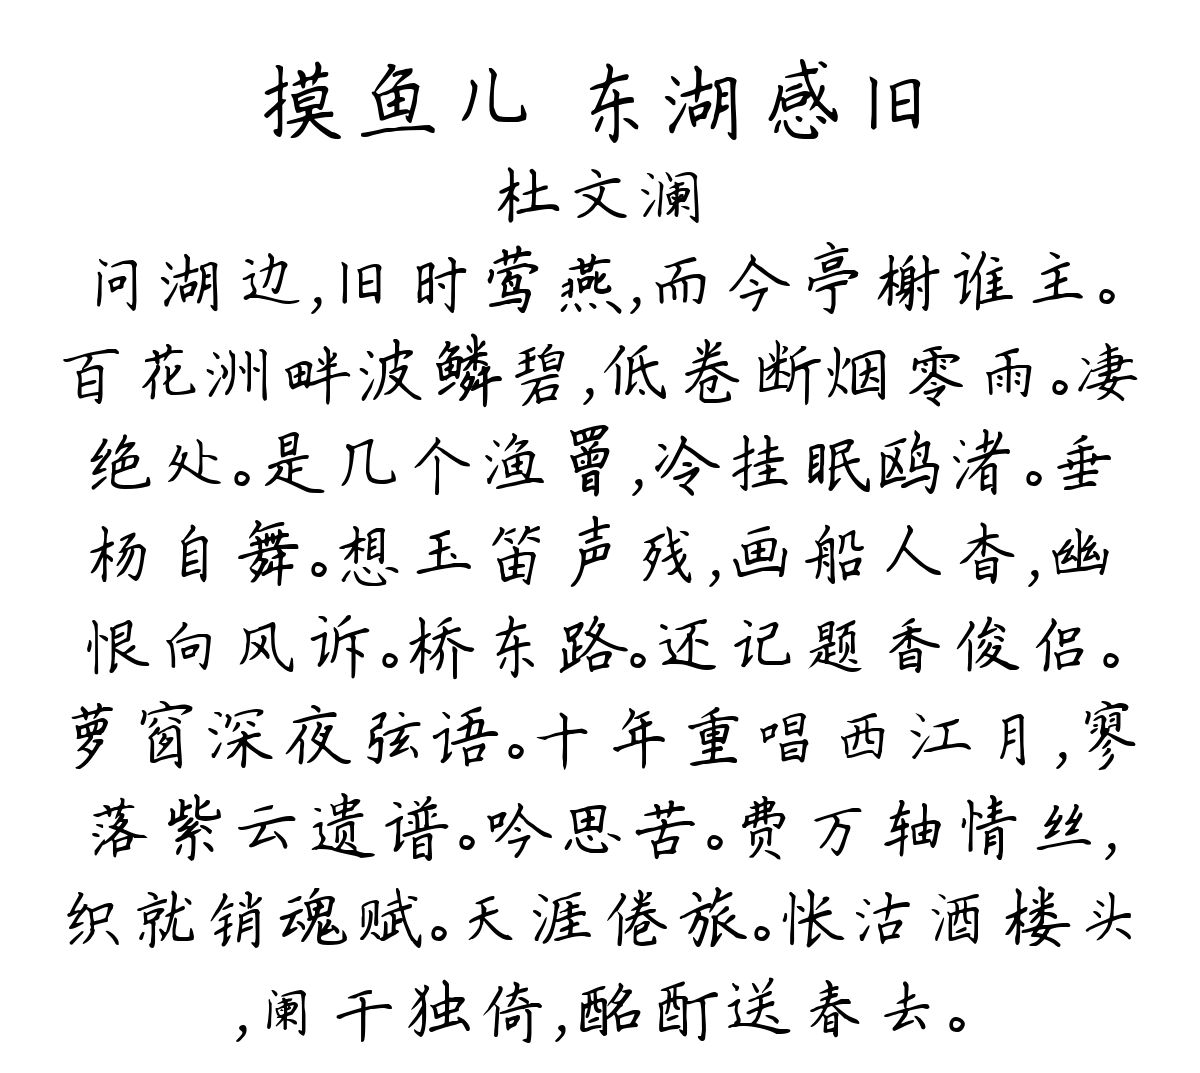 摸鱼儿 东湖感旧
杜文澜
问湖边,旧时莺燕,而今亭榭谁主。
百花洲畔波鳞碧,低卷断烟零雨。凄
绝处。是几个渔罾,冷挂眠鸥渚。垂
杨自舞。想玉笛声残,画船人杳,幽
恨向风诉。桥东路。还记题香俊侣。
萝窗深夜弦语。十年重唱西江月,寥
落紫云遗谱。吟思苦。费万轴情丝,
织就销魂赋。天涯倦旅。怅沽酒楼头
,阑干独倚,酩酊送春去。